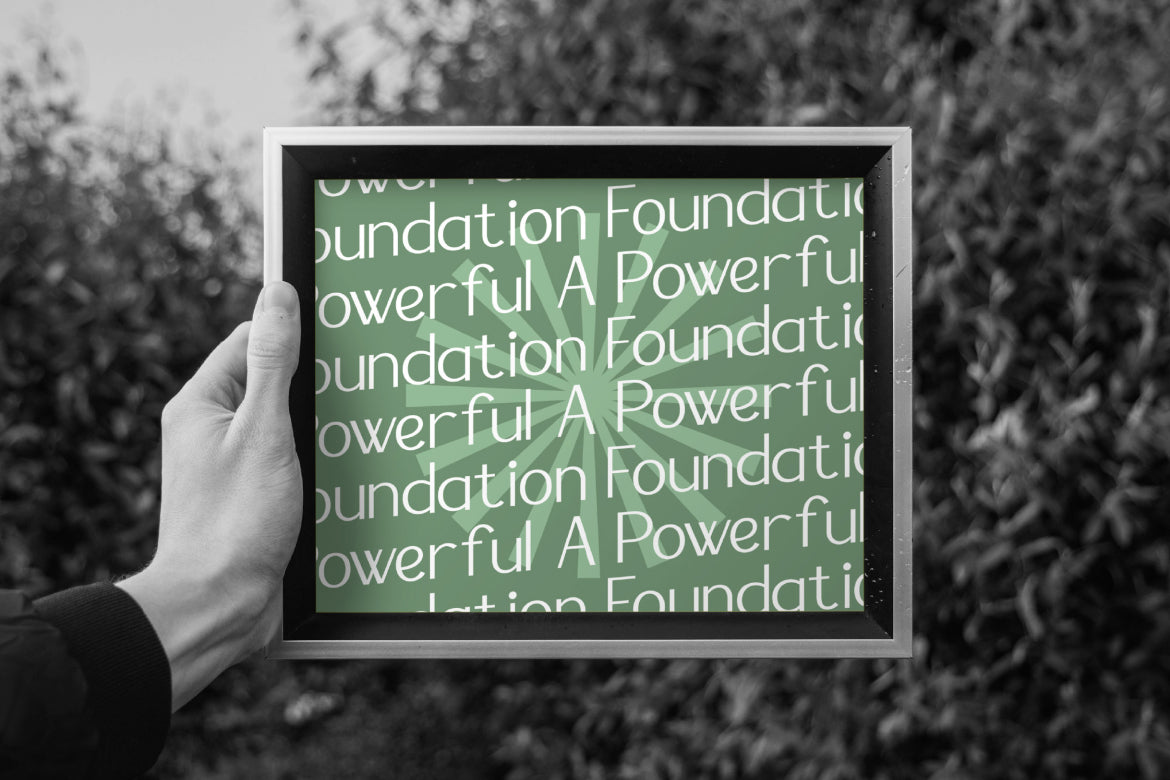 oundation Foundatio
Powerful A Powerful
oundation Foundatio
Powerful A Powerful
oundation Foundatio
Powerful A Powerful
dation Foundatio